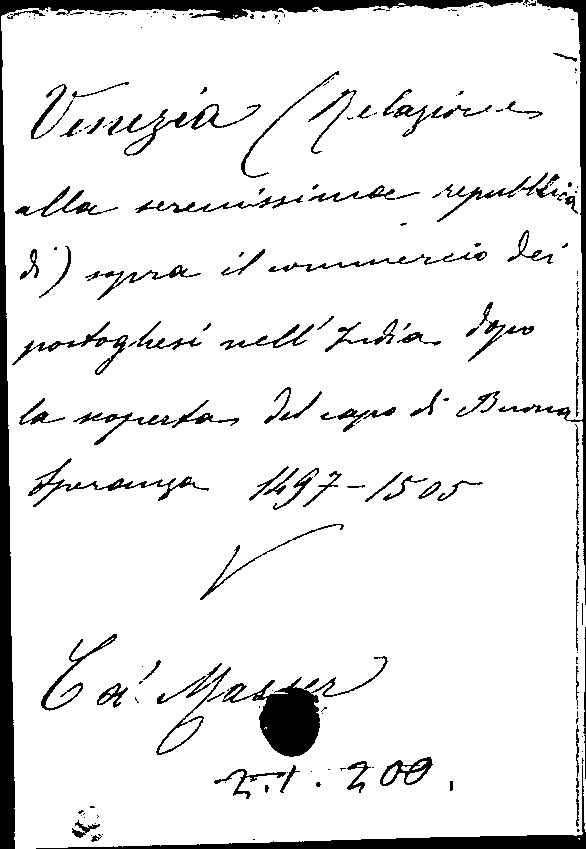 Venezia (Relazione
alla serenissima repubblica
di) sopra il commercio dei
portoghesi nell' India dopo
la scoperta del capo di Buona
Speranza 1497-1505
Ca' Masser
2.1.200.